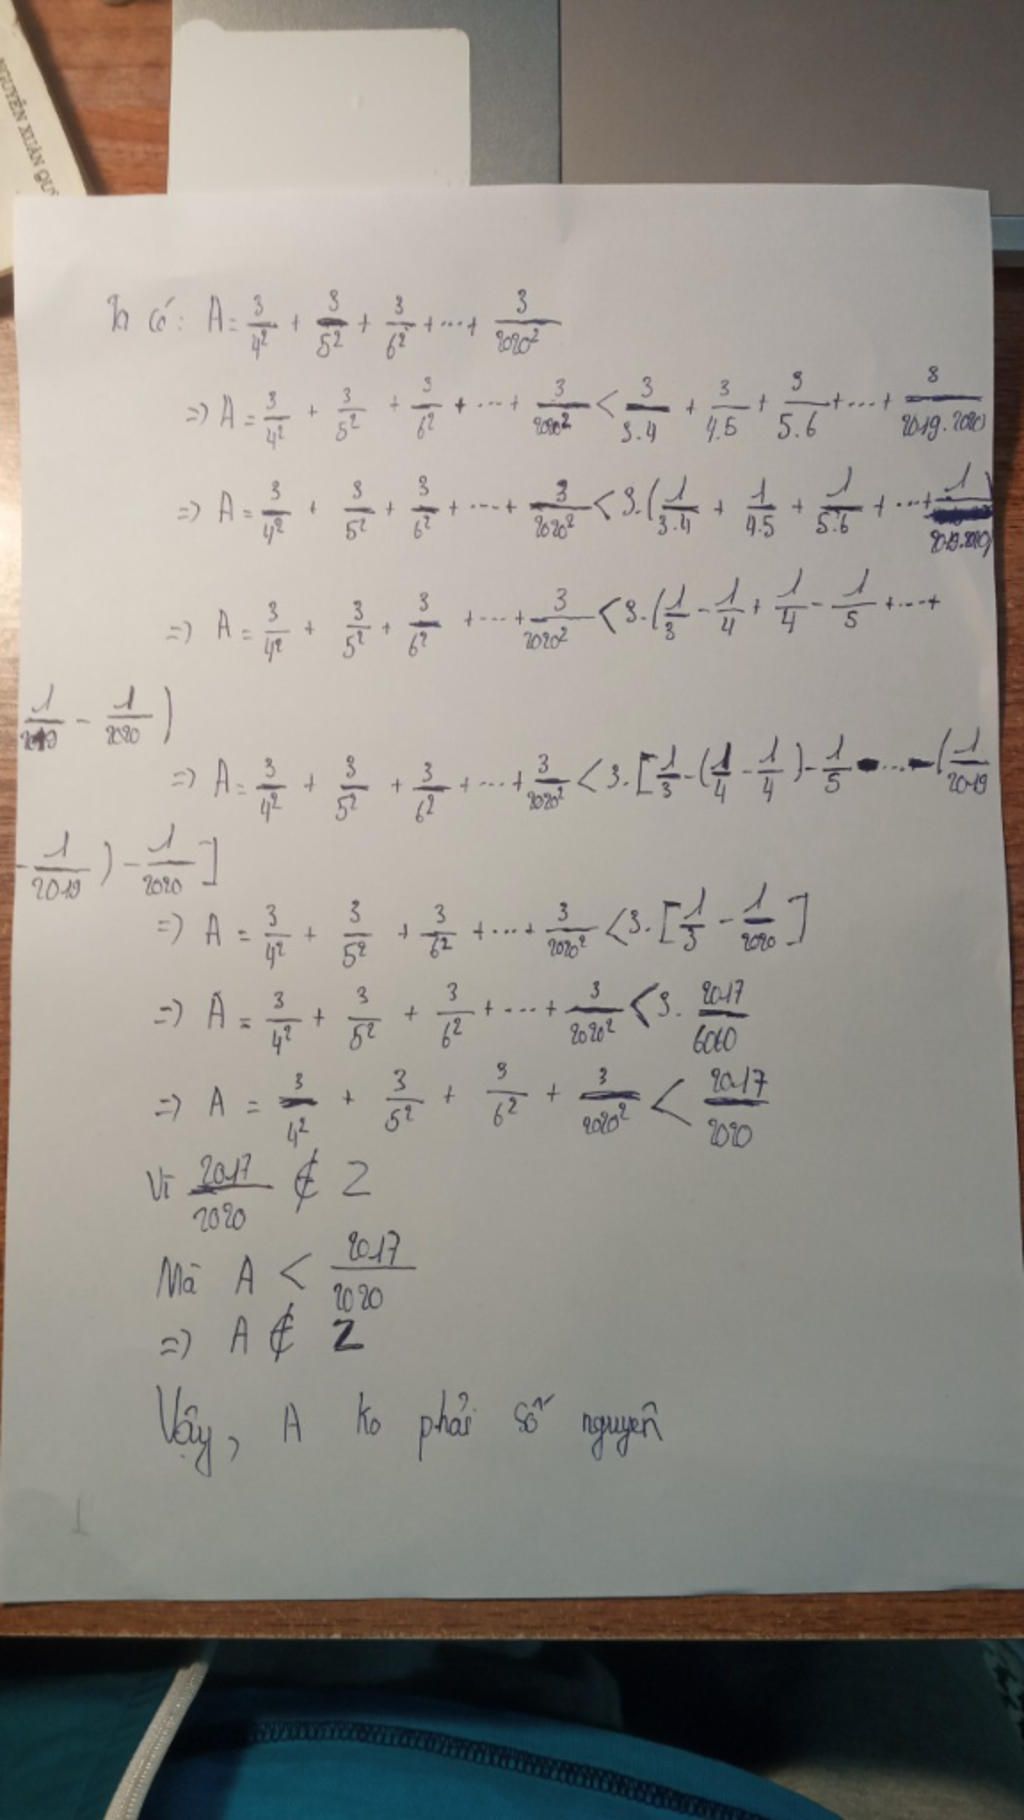 NGUYỄN XUÂN QU
Ta có: A = 3/4² + 3/5² + 3/6² + ... + 3/2020²
=> A = 3/4² + 3/5² + 3/6² + ... + 3/2020² < 3/3.4 + 3/4.5 + 3/5.6 + ... + 3/2019.2020
=> A = 3/4² + 3/5² + 3/6² + ... + 3/2020² < 3.(1/3.4 + 1/4.5 + 1/5.6 + ... + 1/2019.2020)
=> A = 3/4² + 3/5² + 3/6² + ... + 3/2020² < 3.(1/3 - 1/4 + 1/4 - 1/5 + ... +
1/2019 - 1/2020)
=> A = 3/4² + 3/5² + 3/6² + ... + 3/2020² < 3.[1/3 - (1/4 - 1/4) - 1/5 - ... - (1/2019
- 1/2019) - 1/2020]
=> A = 3/4² + 3/5² + 3/6² + ... + 3/2020² < 3.[1/3 - 1/2020]
=> A = 3/4² + 3/5² + 3/6² + ... + 3/2020² < 3. 2017/6060
=> A = 3/4² + 3/5² + 3/6² + 3/2020² < 2017/2020
Vì 2017/2020 ∉ Z
Mà A < 2017/2020
=> A ∉ Z
Vậy, A ko phải số nguyên